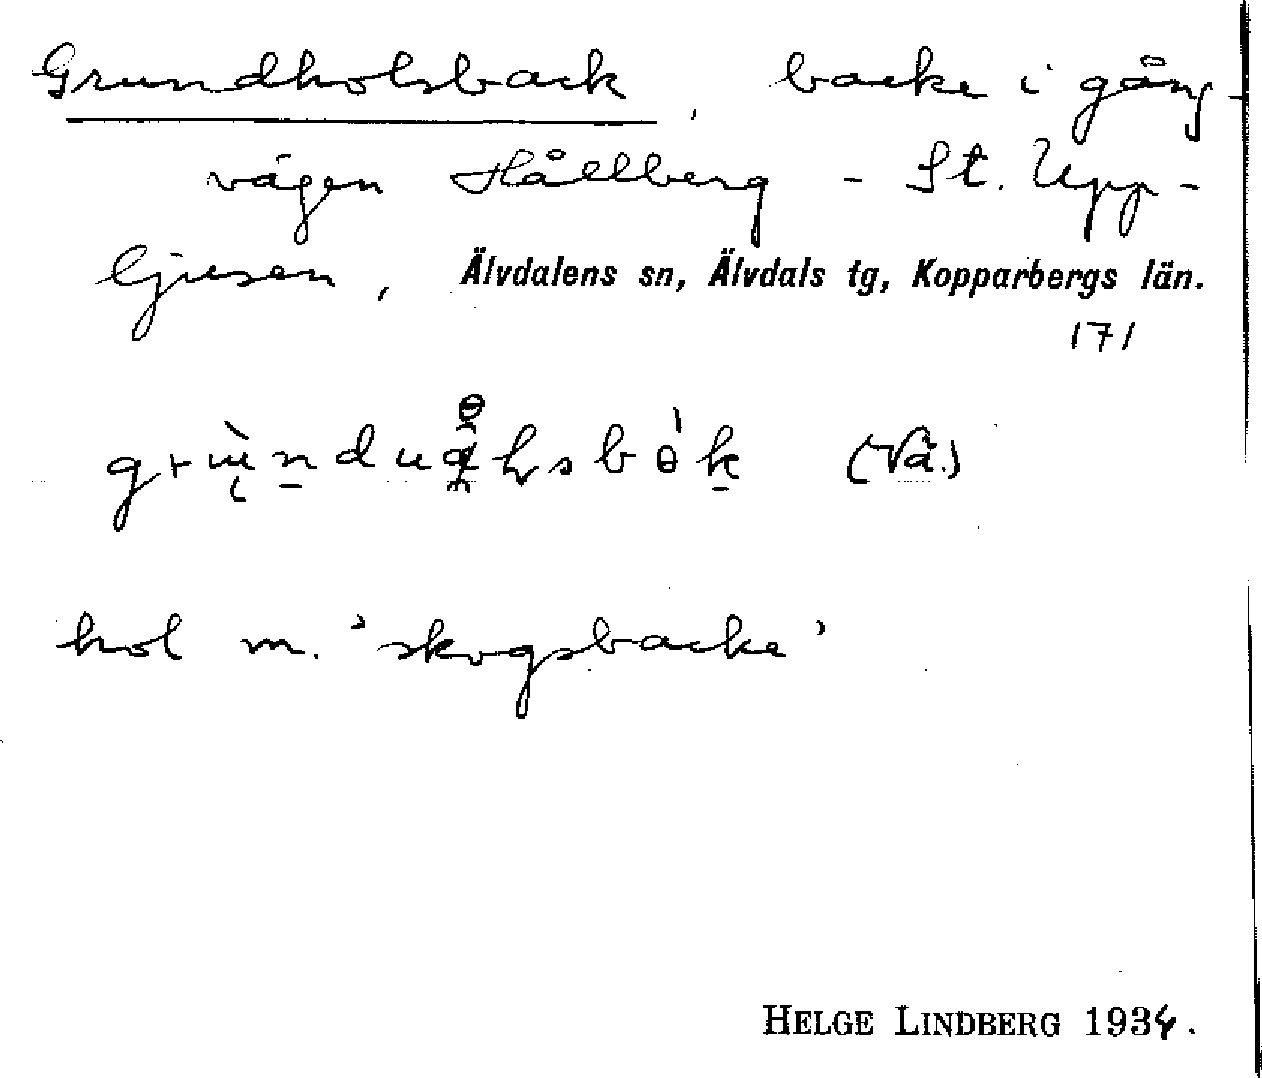 Grundholsback, backe i gång-
vägen Hållberg - St. Upp-
ljusen, Älvdalens sn, Älvdals tg, Kopparbergs län.
171
(Vå.)
hol m. 'skogsbacke'
HELGE LINDBERG 1934.